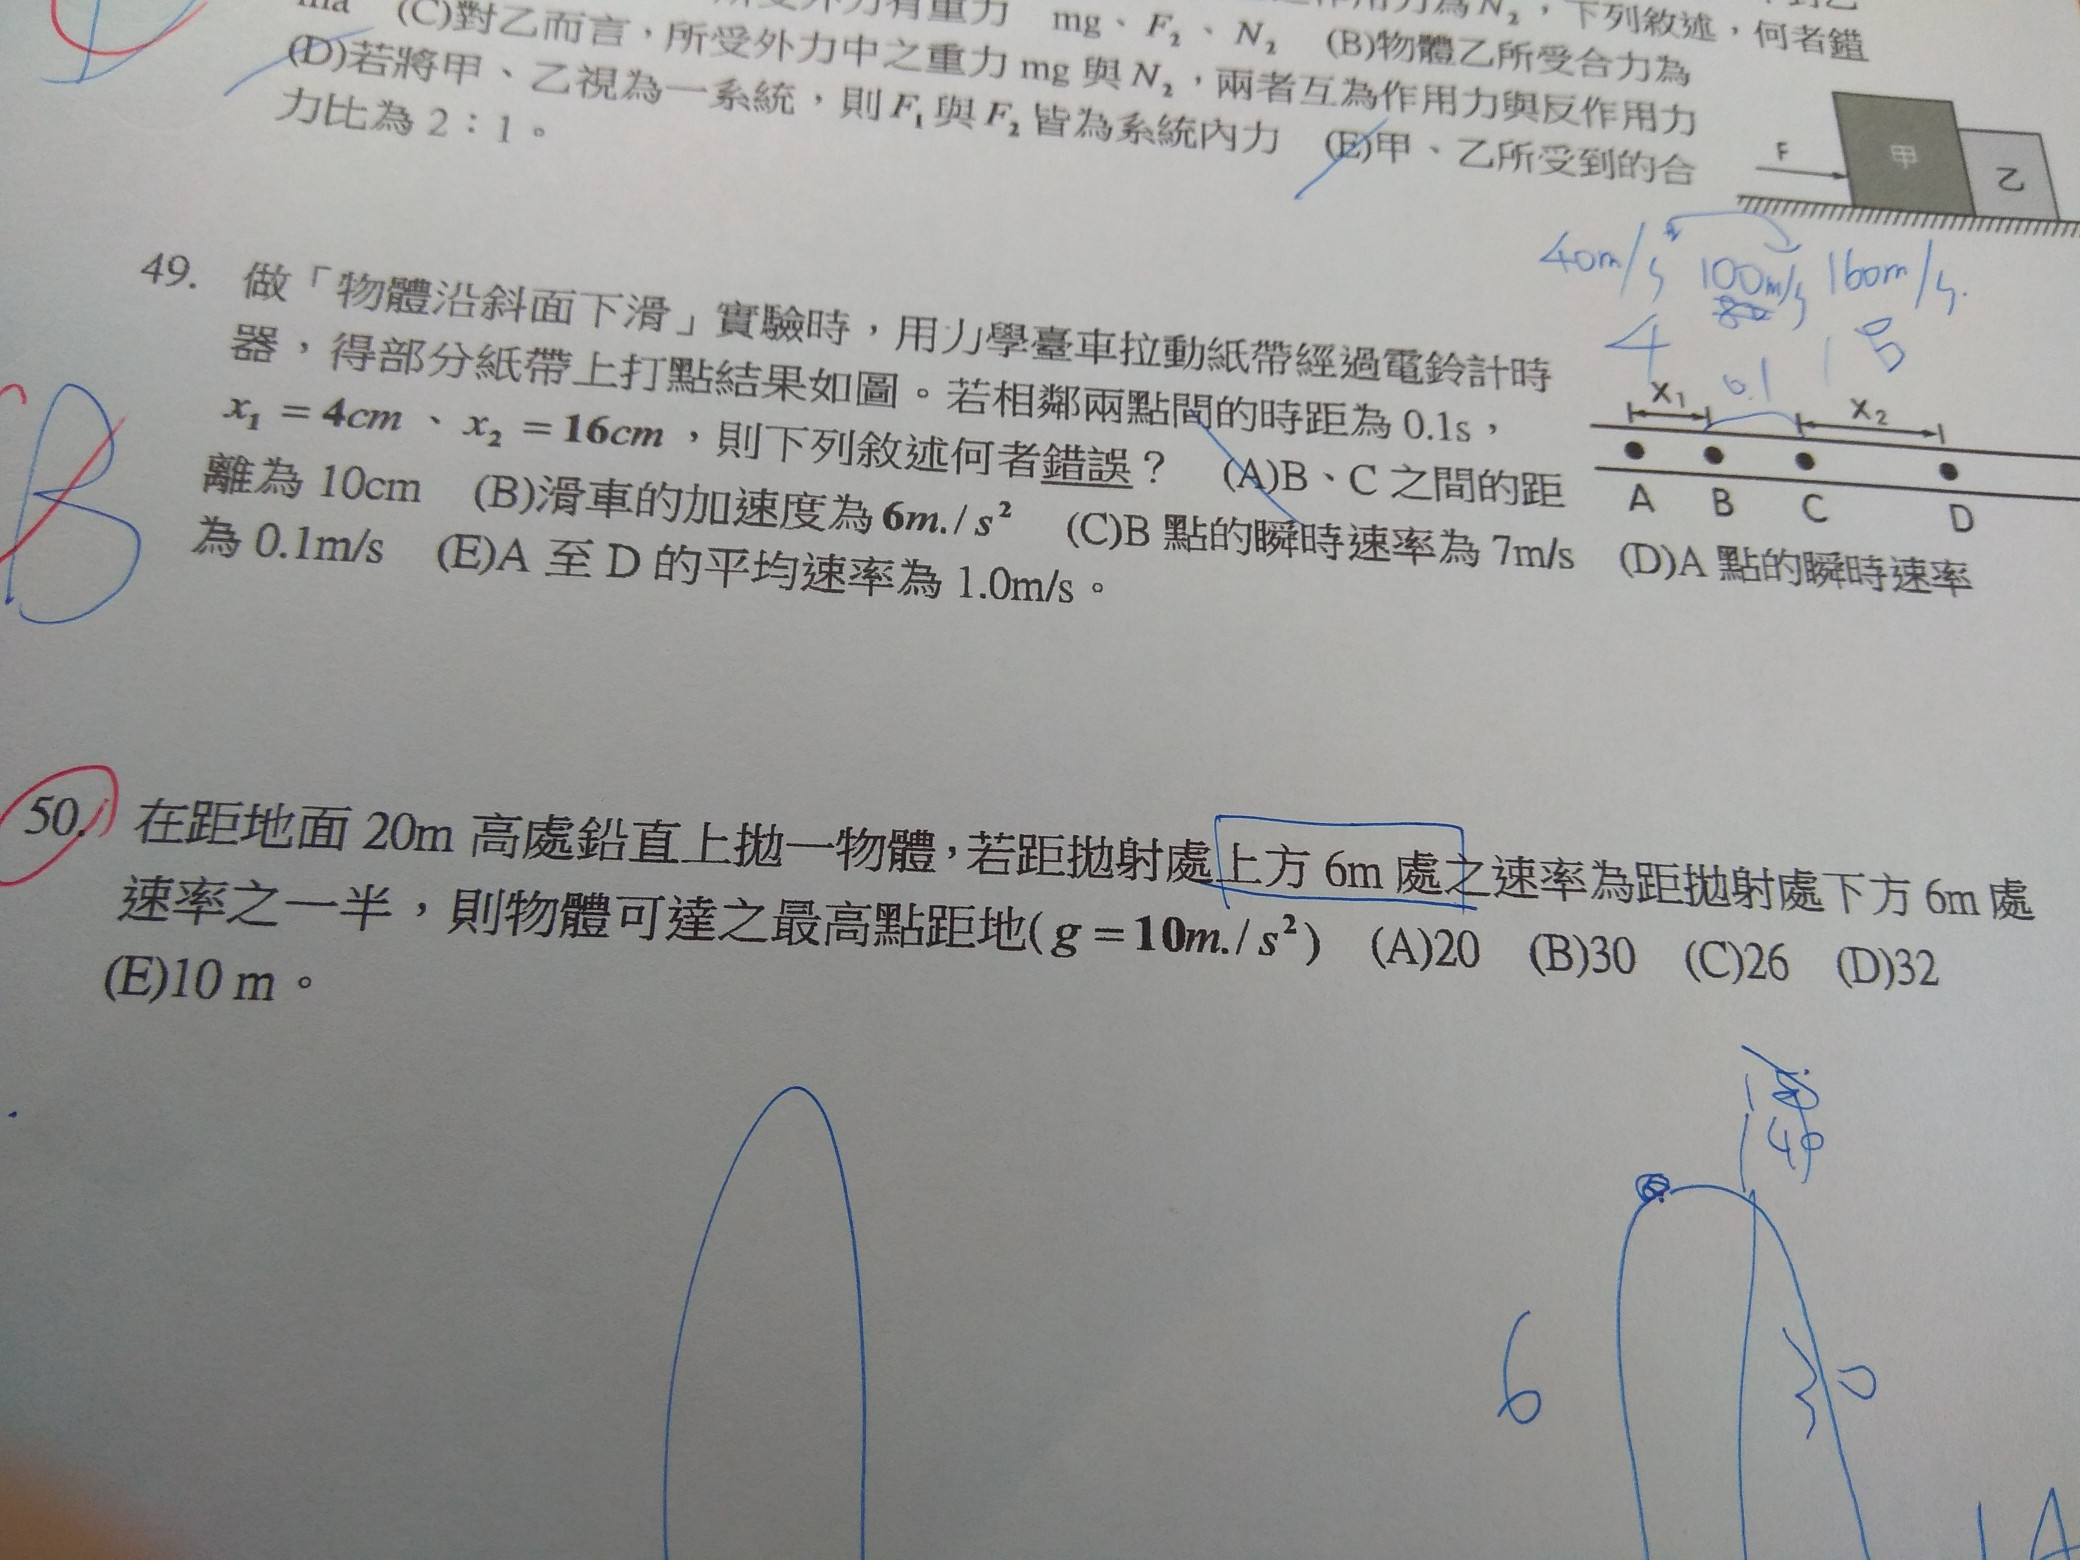 所受外力有重力 mg、F₂、N₂ 作用力為N₂，下列敘述，何者錯
ma (C)對乙而言，所受外力中之重力 mg 與 N₂，兩者互為作用力與反作用力 (B)物體乙所受合力為
(D)若將甲、乙視為一系統，則 F₁ 與 F₂ 皆為系統內力 (E)甲、乙所受到的合
力比為 2：1。
F
甲
乙
40m/s 100m/s 160m/s
49. 做「物體沿斜面下滑」實驗時，用力學臺車拉動紙帶經過電鈴計時
器，得部分紙帶上打點結果如圖。若相鄰兩點間的時距為 0.1s，
x₁ = 4cm、x₂ = 16cm，則下列敘述何者錯誤？ (A)B、C 之間的距
離為 10cm (B)滑車的加速度為 6m./s² (C)B 點的瞬時速率為 7m/s (D)A 點的瞬時速率
為 0.1m/s (E)A 至 D 的平均速率為 1.0m/s。
4
0.1
X₁ X₂
A B C D
B
50. 在距地面 20m 高處鉛直上拋一物體，若距拋射處上方 6m 處之速率為距拋射處下方 6m 處
速率之一半，則物體可達之最高點距地( g = 10m./s² ) (A)20 (B)30 (C)26 (D)32
(E)10 m。
6